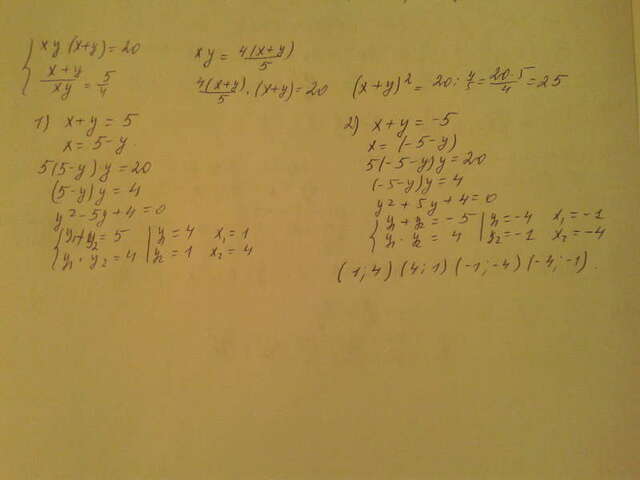 { xy(x+y)=20
x+y/xy = 5/4
xy = 4(x+y)/5
4(x+y)/5 · (x+y)=20
(x+y)² = 20 : 4/5 = 20·5/4 = 25
1) x+y = 5
x = 5-y
5(5-y)·y = 20
(5-y)y = 4
y²-5y+4=0
{ y₁+y₂ = 5 | y₁ = 4 x₁ = 1
y₁·y₂ = 4 | y₂ = 1 x₂ = 4
2) x+y = -5
x = (-5-y)
5(-5-y)y = 20
(-5-y)y = 4
y²+5y+4=0
{ y₁+y₂ = -5 | y₁=-4 x₁ = -1
y₁·y₂ = 4 | y₂=-1 x₂ = -4
(1;4) (4;1) (-1;-4) (-4;-1).